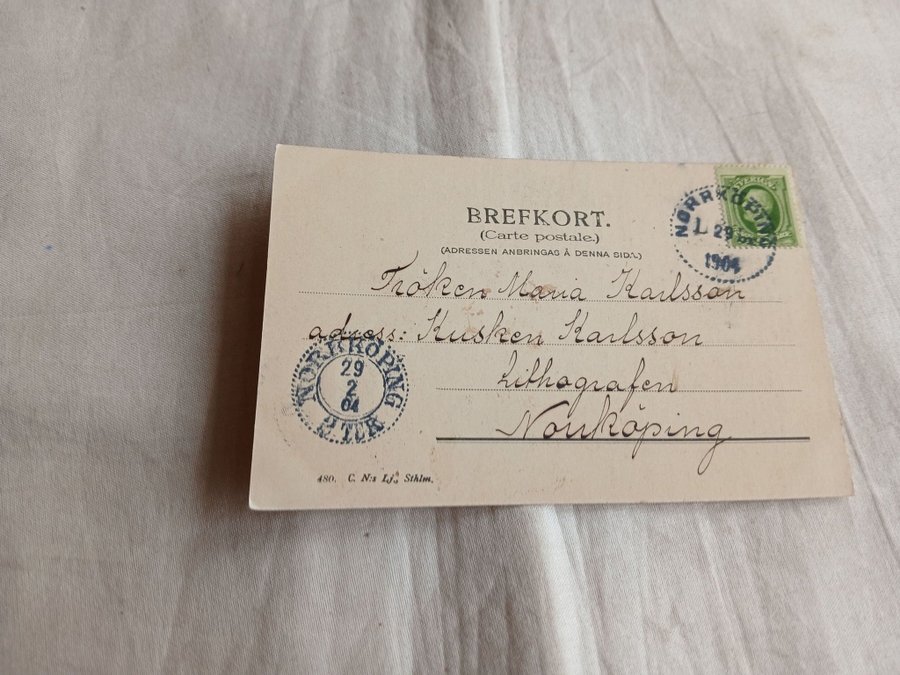 BREFKORT.
(Carte postale.)
(ADRESSEN ANBRINGAS Å DENNA SIDA.)
NORRKÖPING
L 29
1904
Fröken Maria Karlsson
adress: Kusken Karlsson
Lithografen
Norrköping
NORRKÖPING
29
2
04
2 TUR
480. C. N:s Lj., Sthlm.